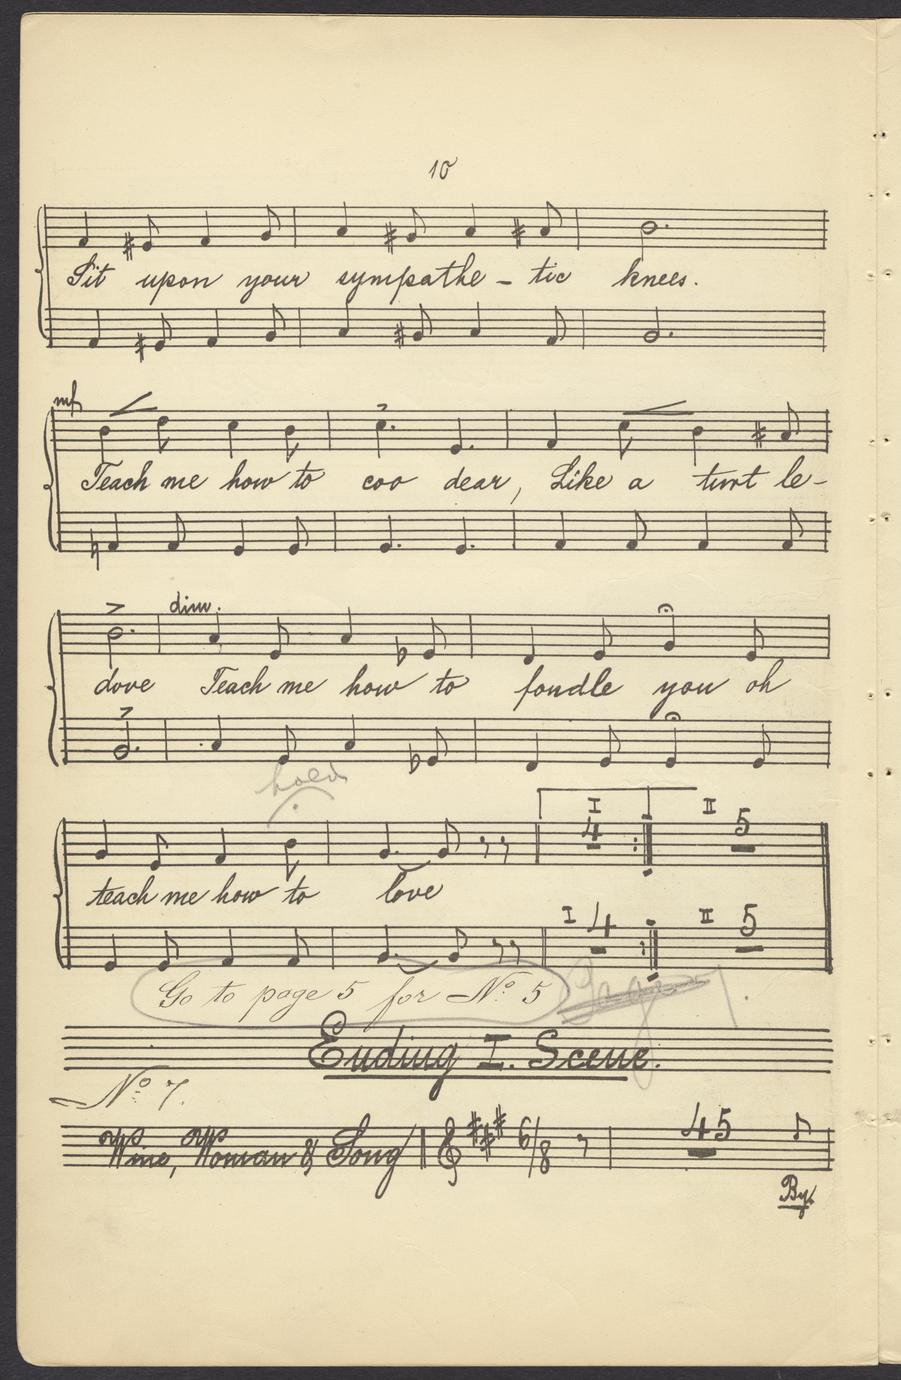 10
Sit upon your sympathe - tic knees.
mf
Teach me how to coo dear, Like a turt le-
dim.
dove Teach me how to fondle you oh
hold
I 4 II 5
teach me how to love
I 4 II 5
Go to page 5 for No 5 Page 7.
Ending I. Scene.
No 7.
Wine, Woman & Song 6/8 45
By